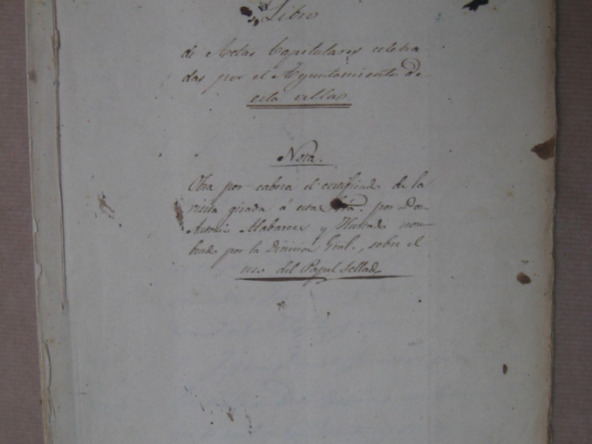 Libro
de Actas Capitulares celebra
das por el Ayuntamiento de
esta villa
Nota.
Obra por cabeza el certificado de la
visita girada á esta por Don
Antonio y Hurtado nom
brado por la Direccion Gral., sobre el
uso del Papel Sellado